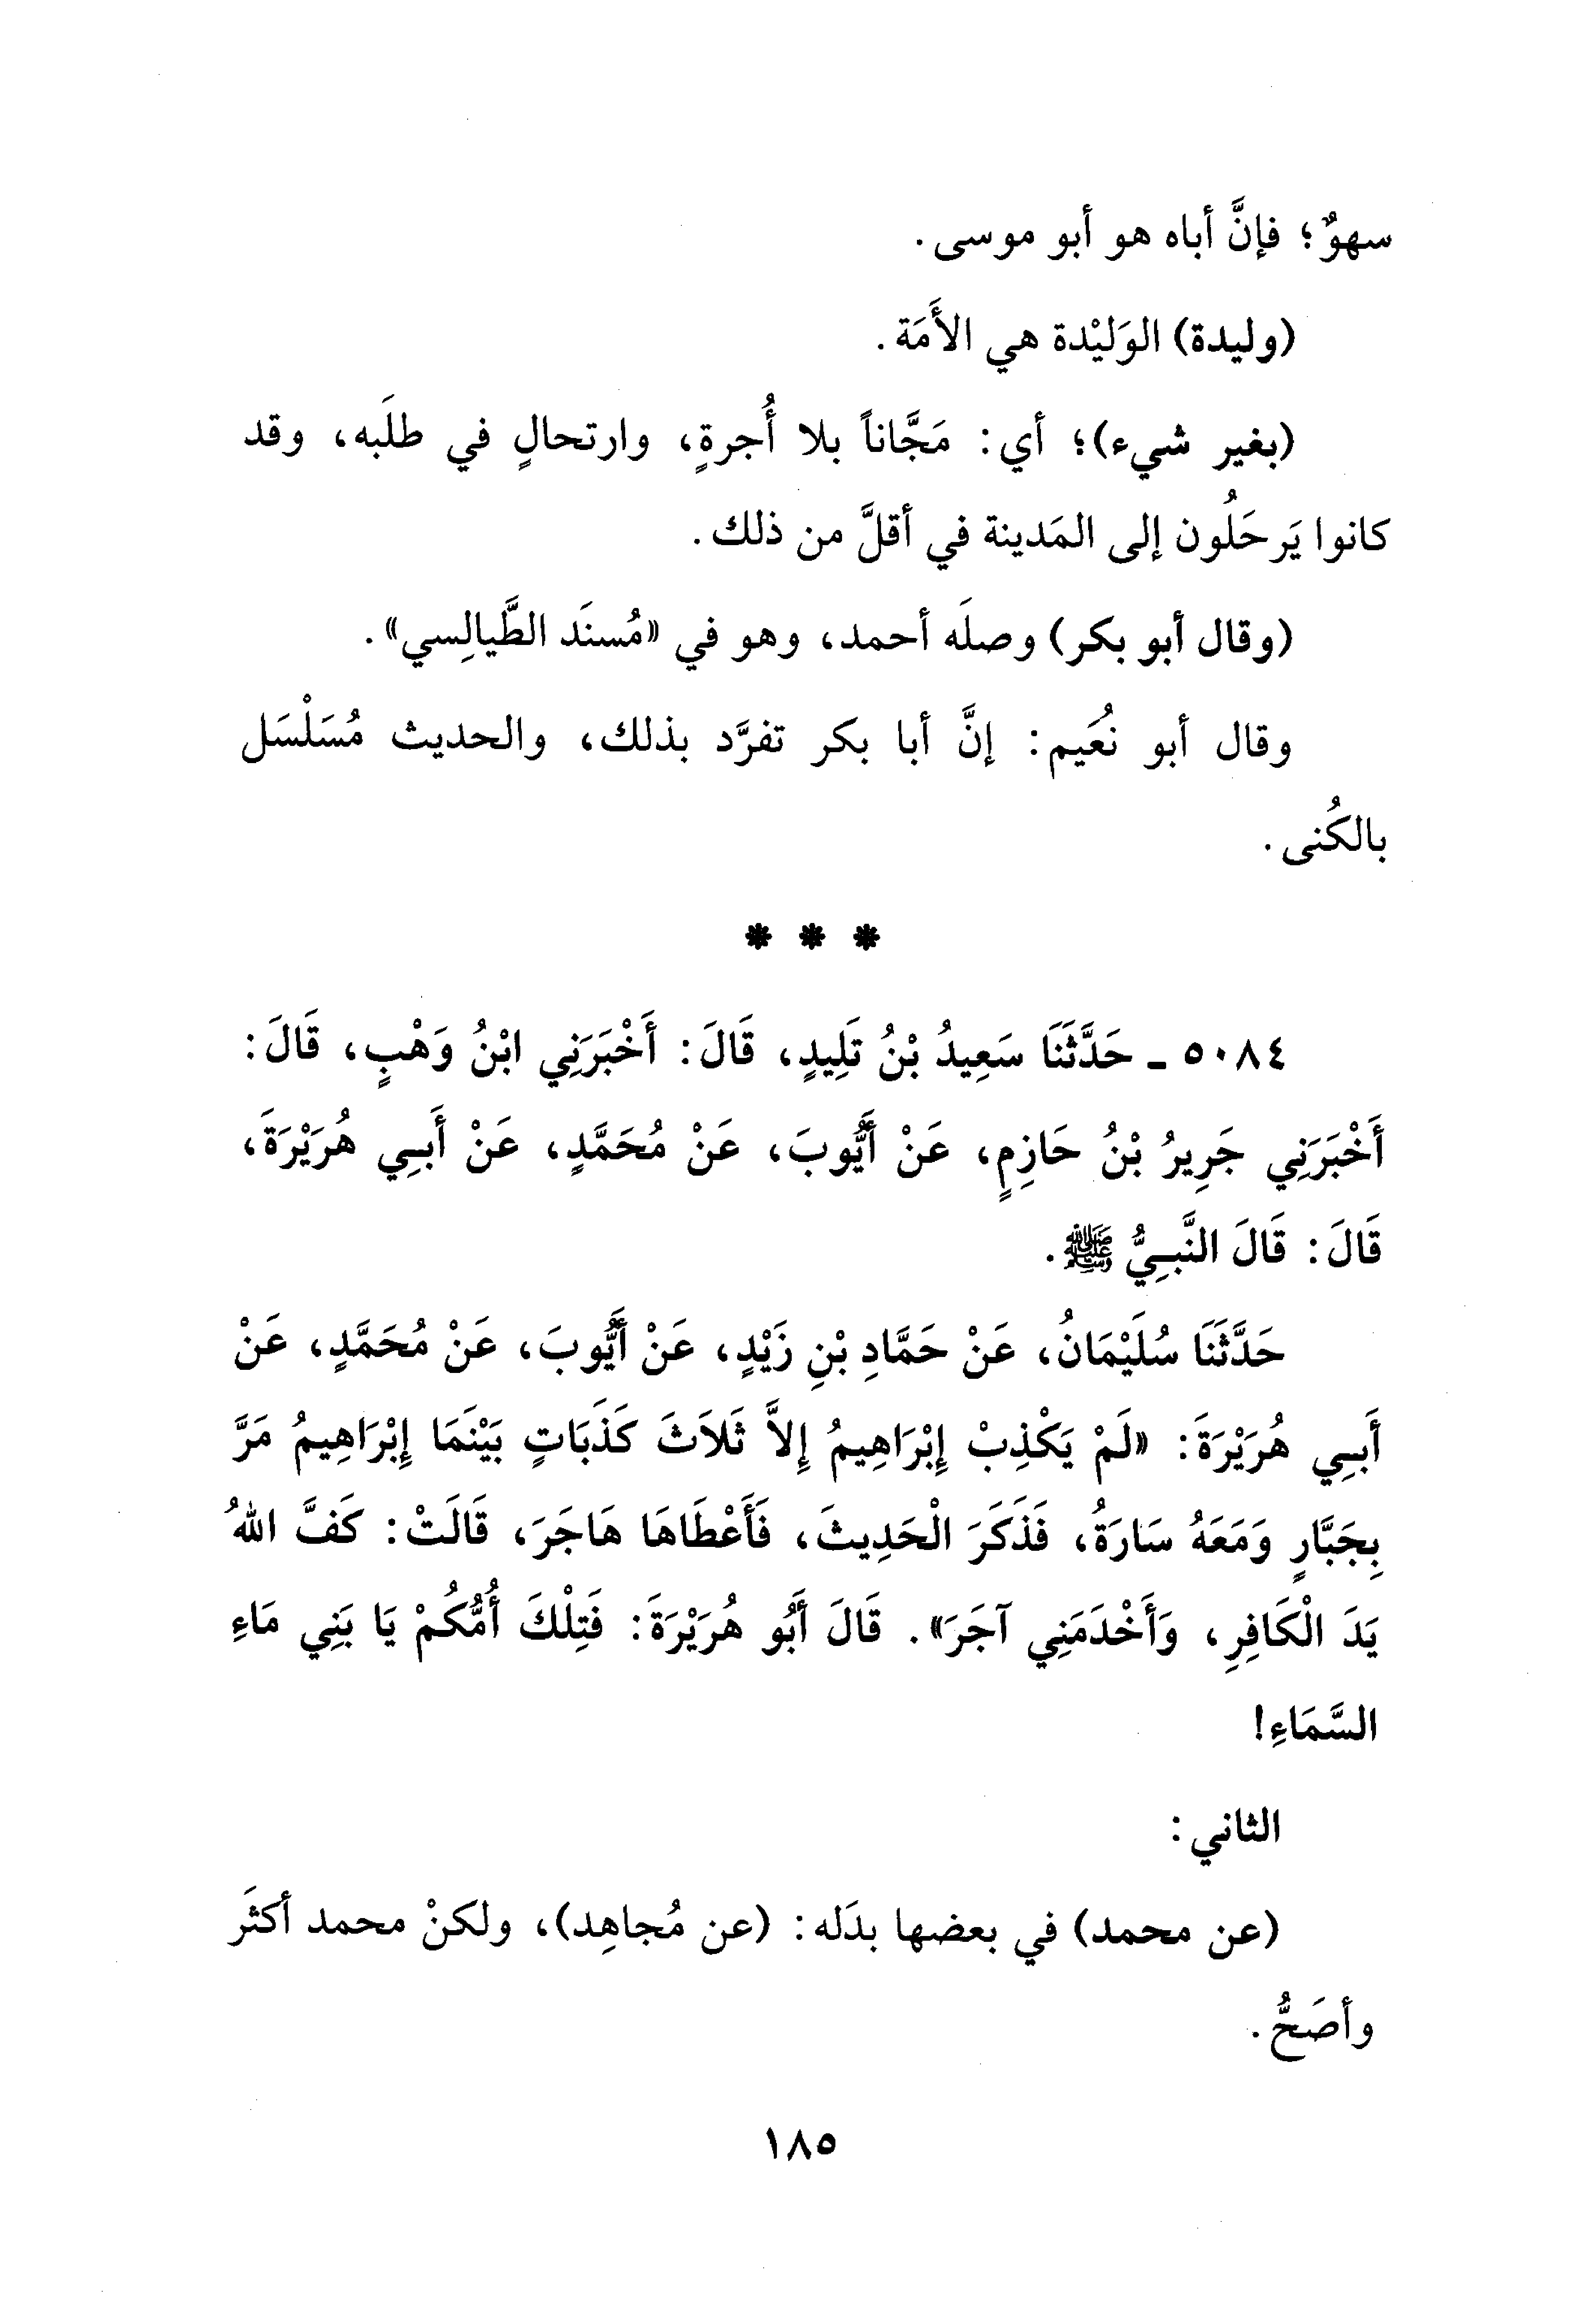 سهوٌ؛ فإنَّ أباه هو أبو موسى.
(وليدة) الوَليْدة هي الأَمَة.
(بغير شيء)؛ أي: مَجَّاناً بلا أُجرةٍ، وارتحالٍ في طلَبه، وقد
كانوا يَرحَلُون إلى المَدينة في أقلَّ من ذلك.
(وقال أبو بكر) وصلَه أحمد، وهو في «مُسنَد الطَّيالِسي».
وقال أبو نُعَيم: إنَّ أبا بكر تفرَّد بذلك، والحديث مُسَلْسَل
بالكُنى.
* * *
٥٠٨٤ - حَدَّثَنَا سَعِيدُ بْنُ تَلِيدٍ، قَالَ: أَخْبَرَنِي ابْنُ وَهْبٍ، قَالَ:
أَخْبَرَنِي جَرِيرُ بْنُ حَازِمٍ، عَنْ أَيُّوبَ، عَنْ مُحَمَّدٍ، عَنْ أَبِي هُرَيْرَةَ،
قَالَ: قَالَ النَّبِيُّ ﷺ.
حَدَّثَنَا سُلَيْمَانُ، عَنْ حَمَّادِ بْنِ زَيْدٍ، عَنْ أَيُّوبَ، عَنْ مُحَمَّدٍ، عَنْ
أَبِي هُرَيْرَةَ: «لَمْ يَكْذِبْ إِبْرَاهِيمُ إِلاَّ ثَلاَثَ كَذَبَاتٍ بَيْنَمَا إِبْرَاهِيمُ مَرَّ
بِجَبَّارٍ وَمَعَهُ سَارَةُ، فَذَكَرَ الْحَدِيثَ، فَأَعْطَاهَا هَاجَرَ، قَالَتْ: كَفَّ اللهُ
يَدَ الْكَافِرِ، وَأَخْدَمَنِي آجَرَ». قَالَ أَبُو هُرَيْرَةَ: فَتِلْكَ أُمُّكُمْ يَا بَنِي مَاءِ
السَّمَاءِ!
الثاني:
(عن محمد) في بعضها بدَله: (عن مُجاهِد)، ولكنْ محمد أكثَر
وأصَحُّ.
١٨٥